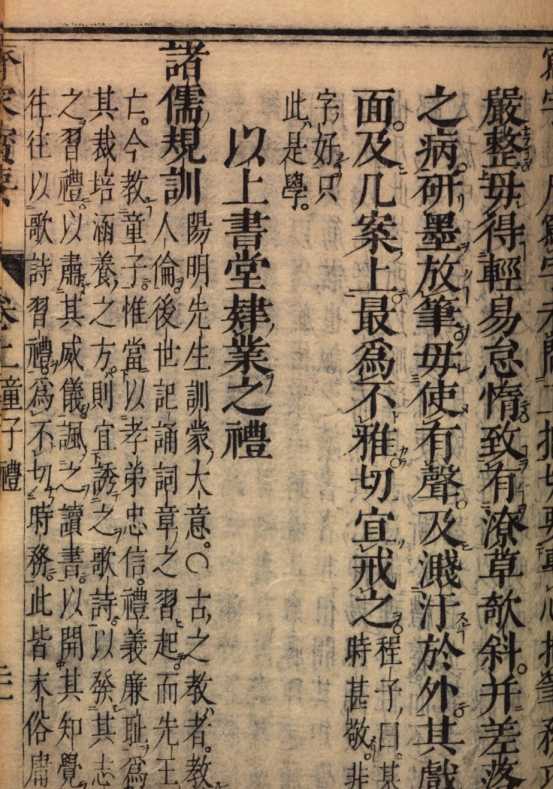 嚴整毋得輕易怠惰致有潦草欹斜并差落
之病研墨放筆毋使有聲及濺汙於外其戲
面及几案上最爲不雅切宜戒之程子曰某
時甚敬非
字好只
此是學
以上書堂肄業之禮
諸儒規訓陽明先生訓蒙大意○古之教者教
人倫後世記誦詞章之習起而先王
亡今教童子惟當以孝弟忠信禮義廉恥爲
其栽培涵養之方則宜誘之歌詩以發其志
之習禮以肅其威儀諷之讀書以開其知覺
往往以歌詩習禮爲不切時務此皆末俗庸
卷上童子禮